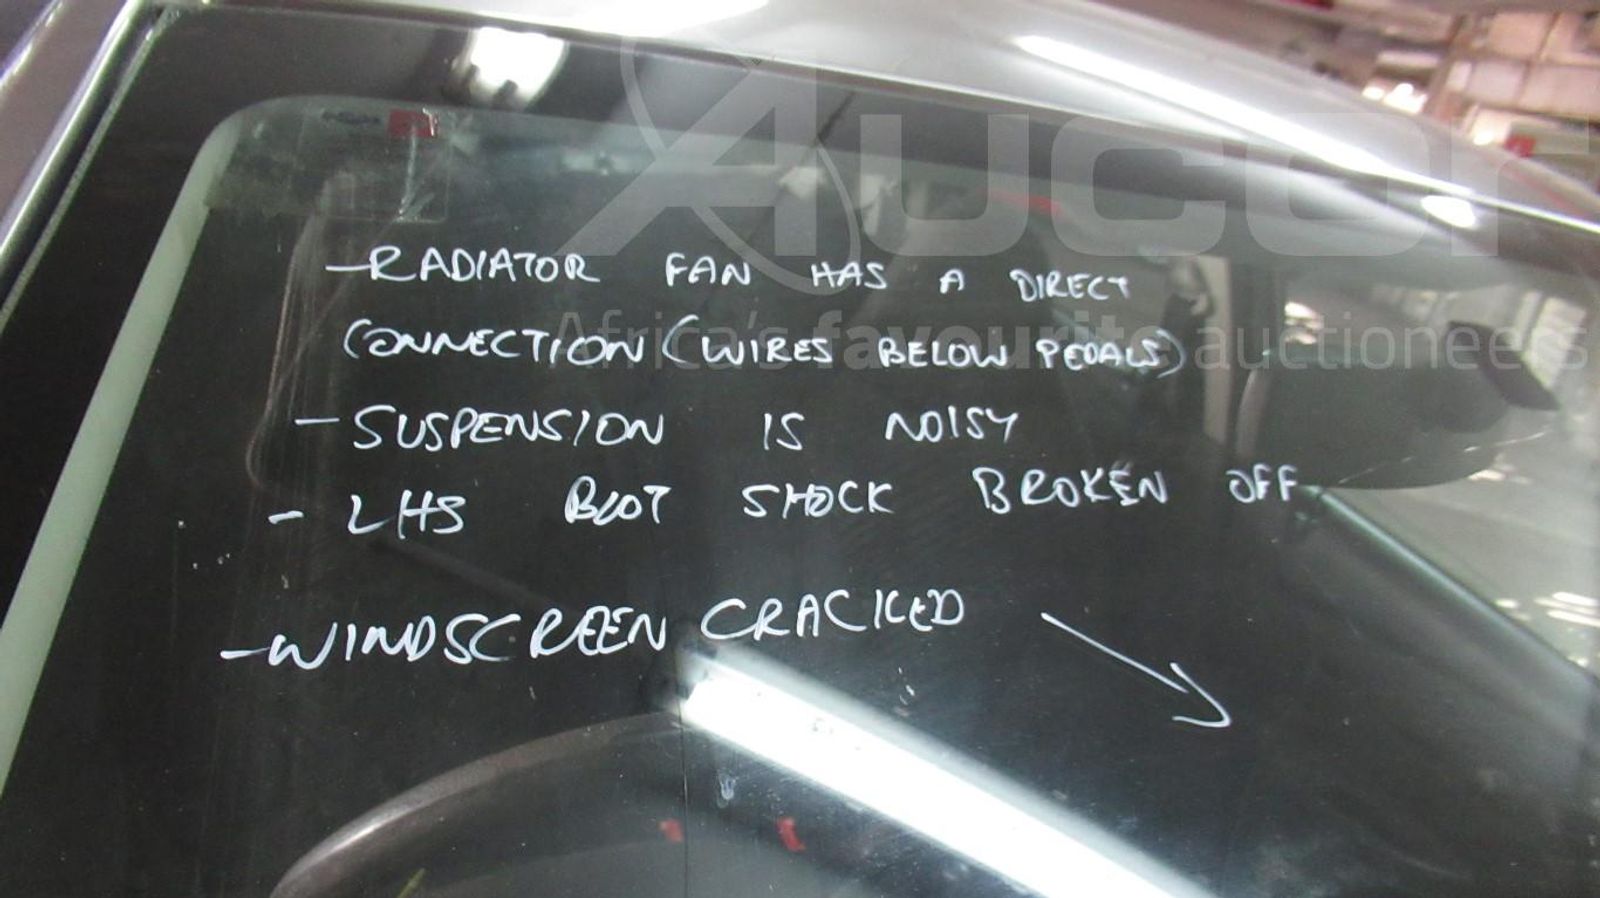 Aucor
Africa's favourite auctioneers
- RADIATOR FAN HAS A DIRECT
CONNECTION (WIRES BELOW PEDALS)
- SUSPENSION IS NOISY
- LHS BOOT SHOCK BROKEN OFF
- WINDSCREEN CRACKED